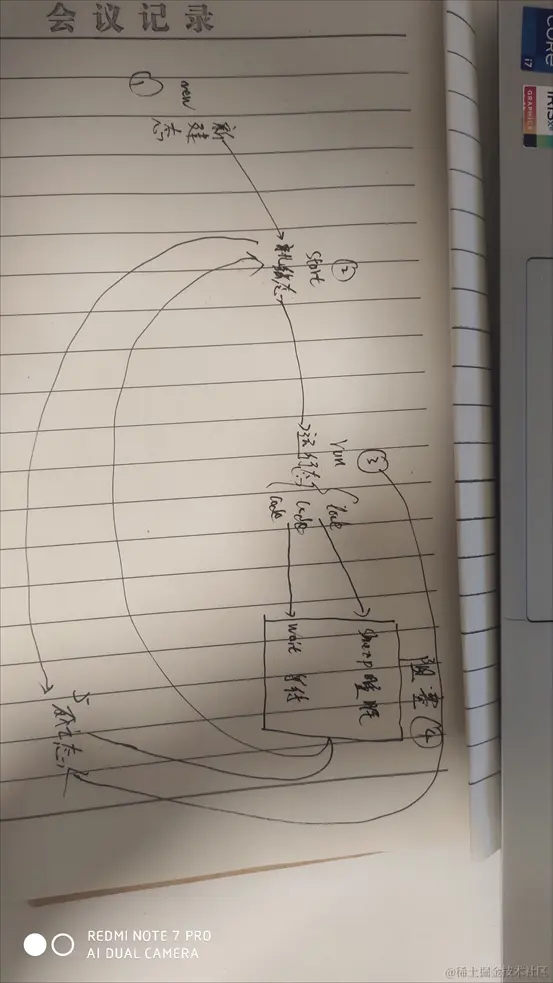 会议记录
CORE
i7
IRIS Xe
GRAPHICS
①
new
新建态
②
start
就绪态
③
run
运行态
lock
code
code
阻塞④
sleep睡眠
wait 等待
5
死亡态
REDMI NOTE 7 PRO
AI DUAL CAMERA
@稀土掘金技术社区